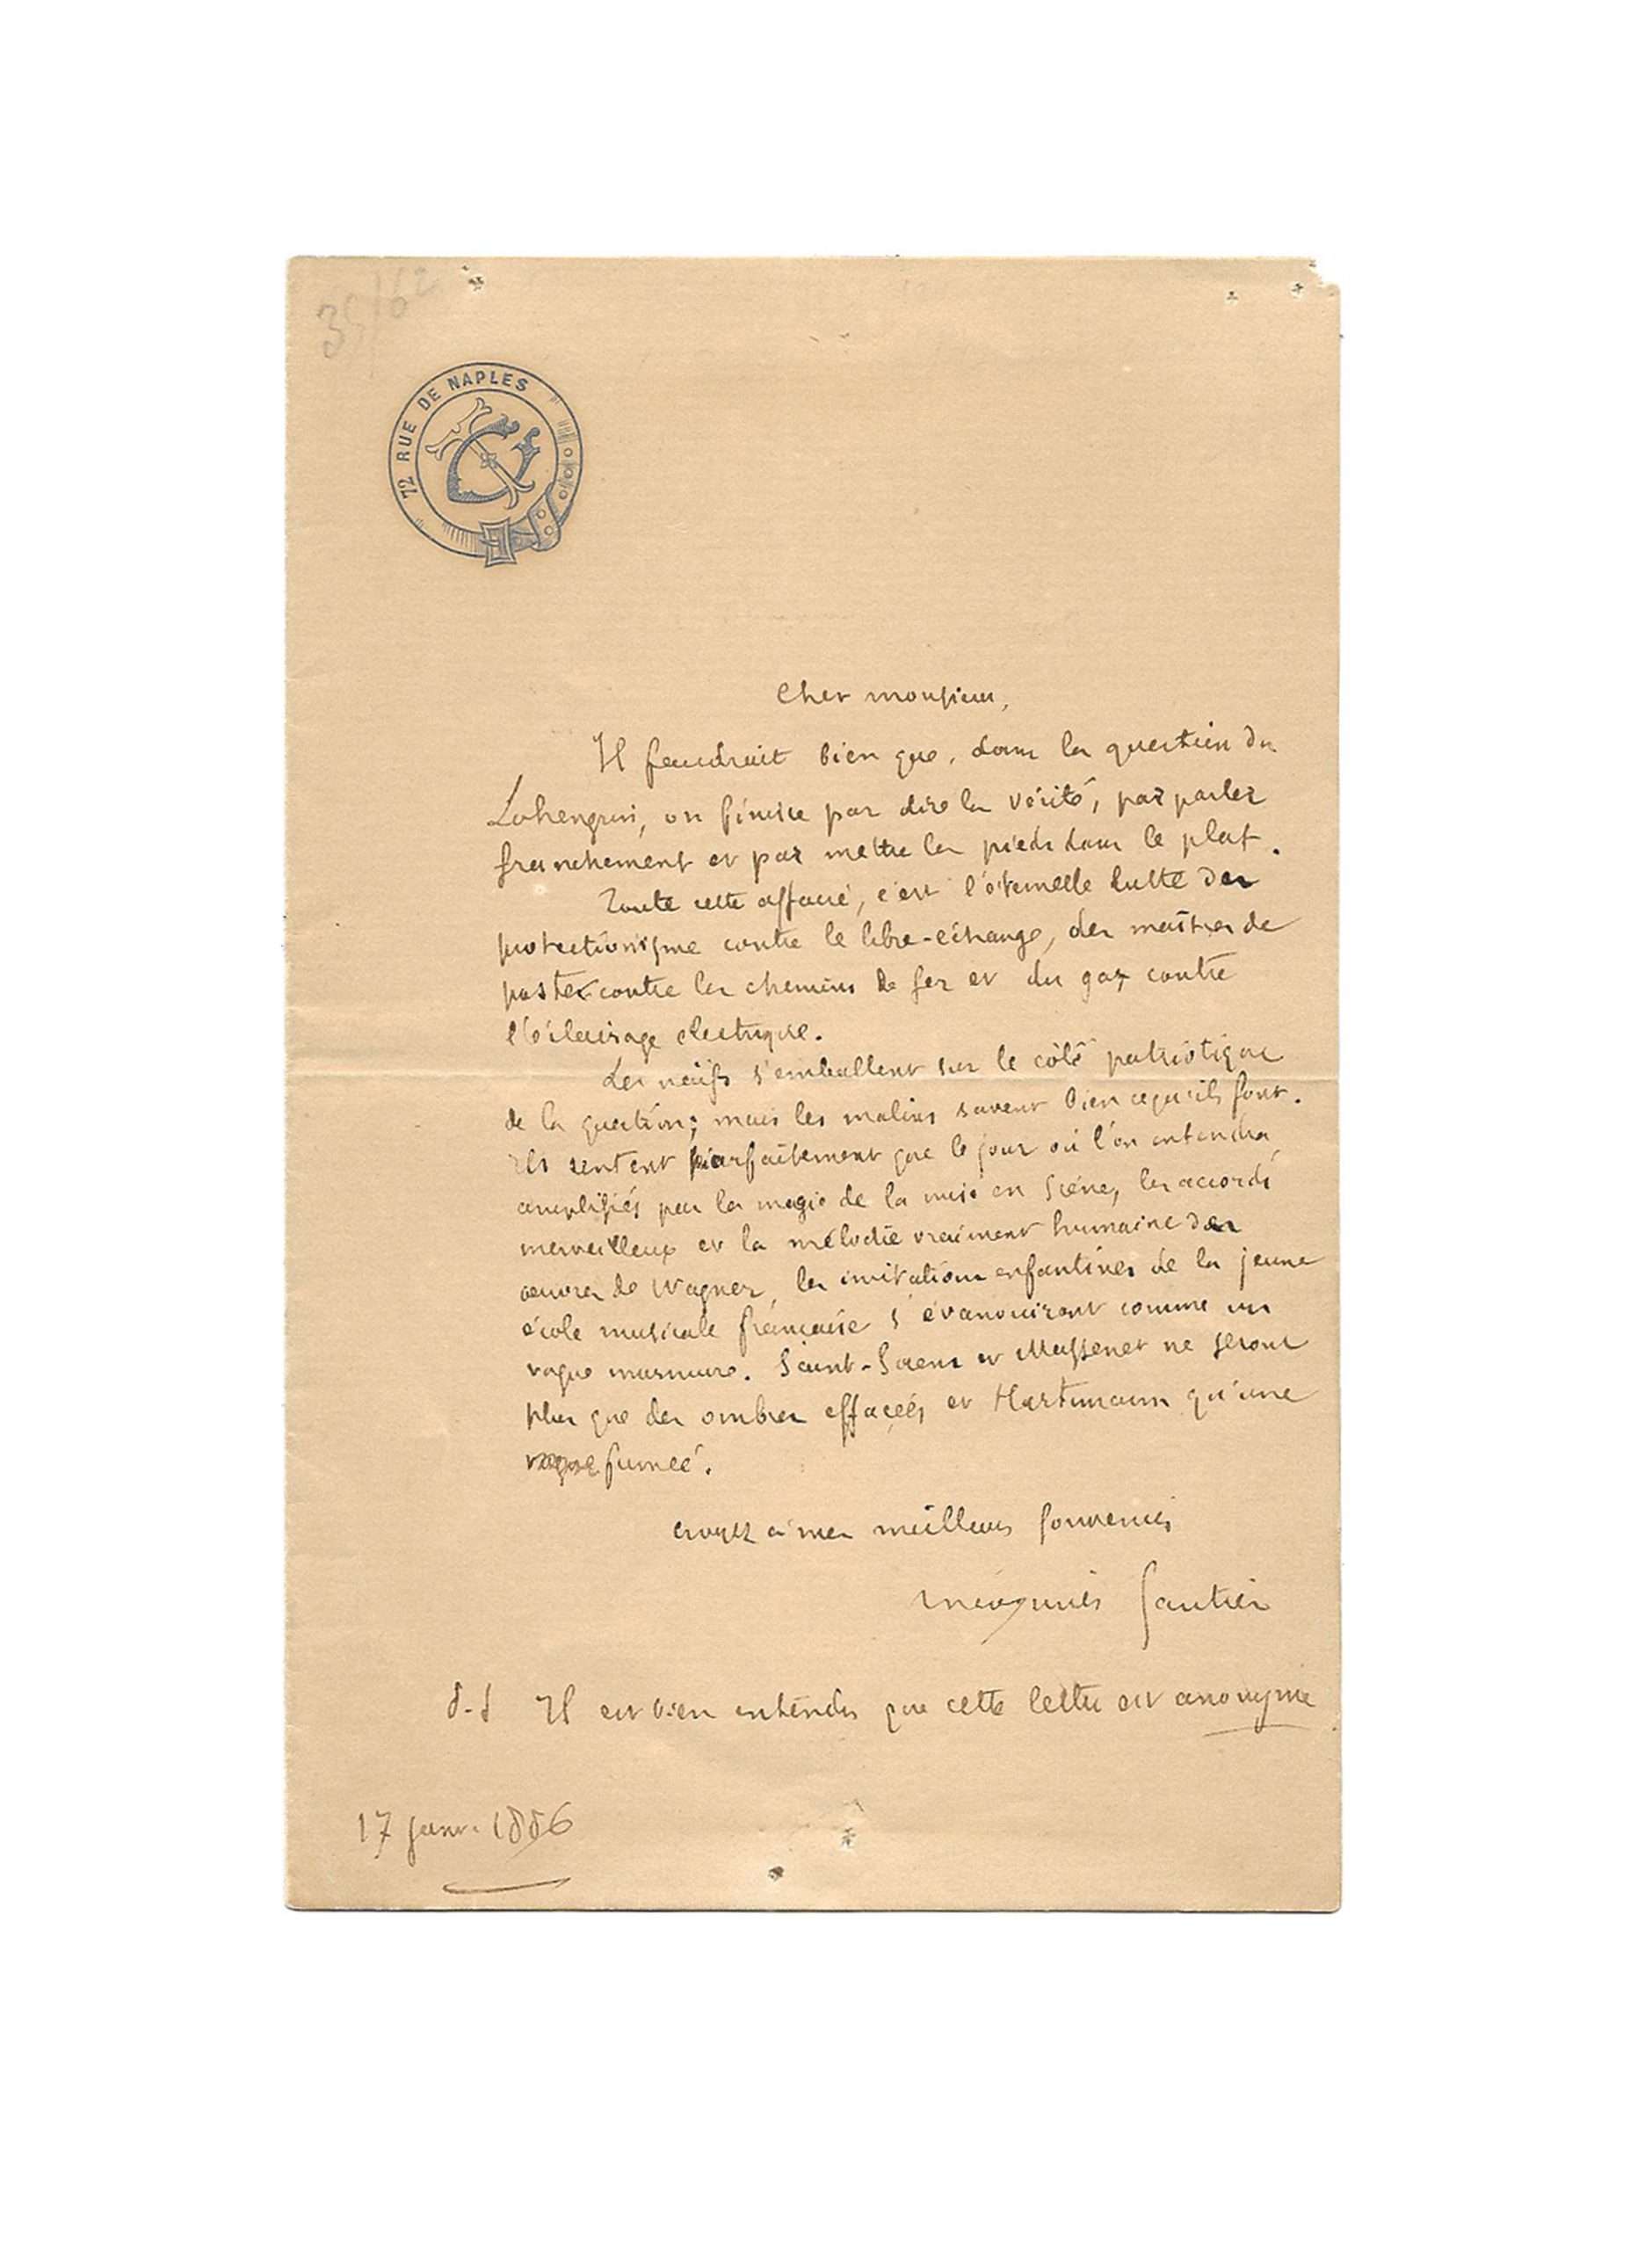 35/62
72 RUE DE NAPLES
Cher monsieur,
Il faudrait bien que, dans la question du
Lohengrin, on finisse par dire la vérité, par parler
franchement et par mettre les pieds dans le plat.
Toute cette affaire, c'est l'éternelle lutte des
protectionisme contre le libre-échange, des maîtres de
postes contre les chemins de fer et du gaz contre
l'éclairage électrique.
Les naïfs s'emballent sur le côté patriotique
de la question; mais les malins savent bien ce qu'ils font.
Ils sentent parfaitement que le jour où l'on entendra,
amplifiés par la magie de la mise en scène, les accords
merveilleux et la mélodie vraiment humaine des
œuvres de Wagner, les imitations enfantines de la jeune
école musicale française s'évanouiront comme un
vague murmure. Saint-Saens et Massenet ne seront
plus que des ombres effacées et Hartmann qu'une
vague fumée.
Croyez à mes meilleurs souvenirs
Gautier
P.S Il est bien entendu que cette lettre est anonyme.
17 janv. 1886